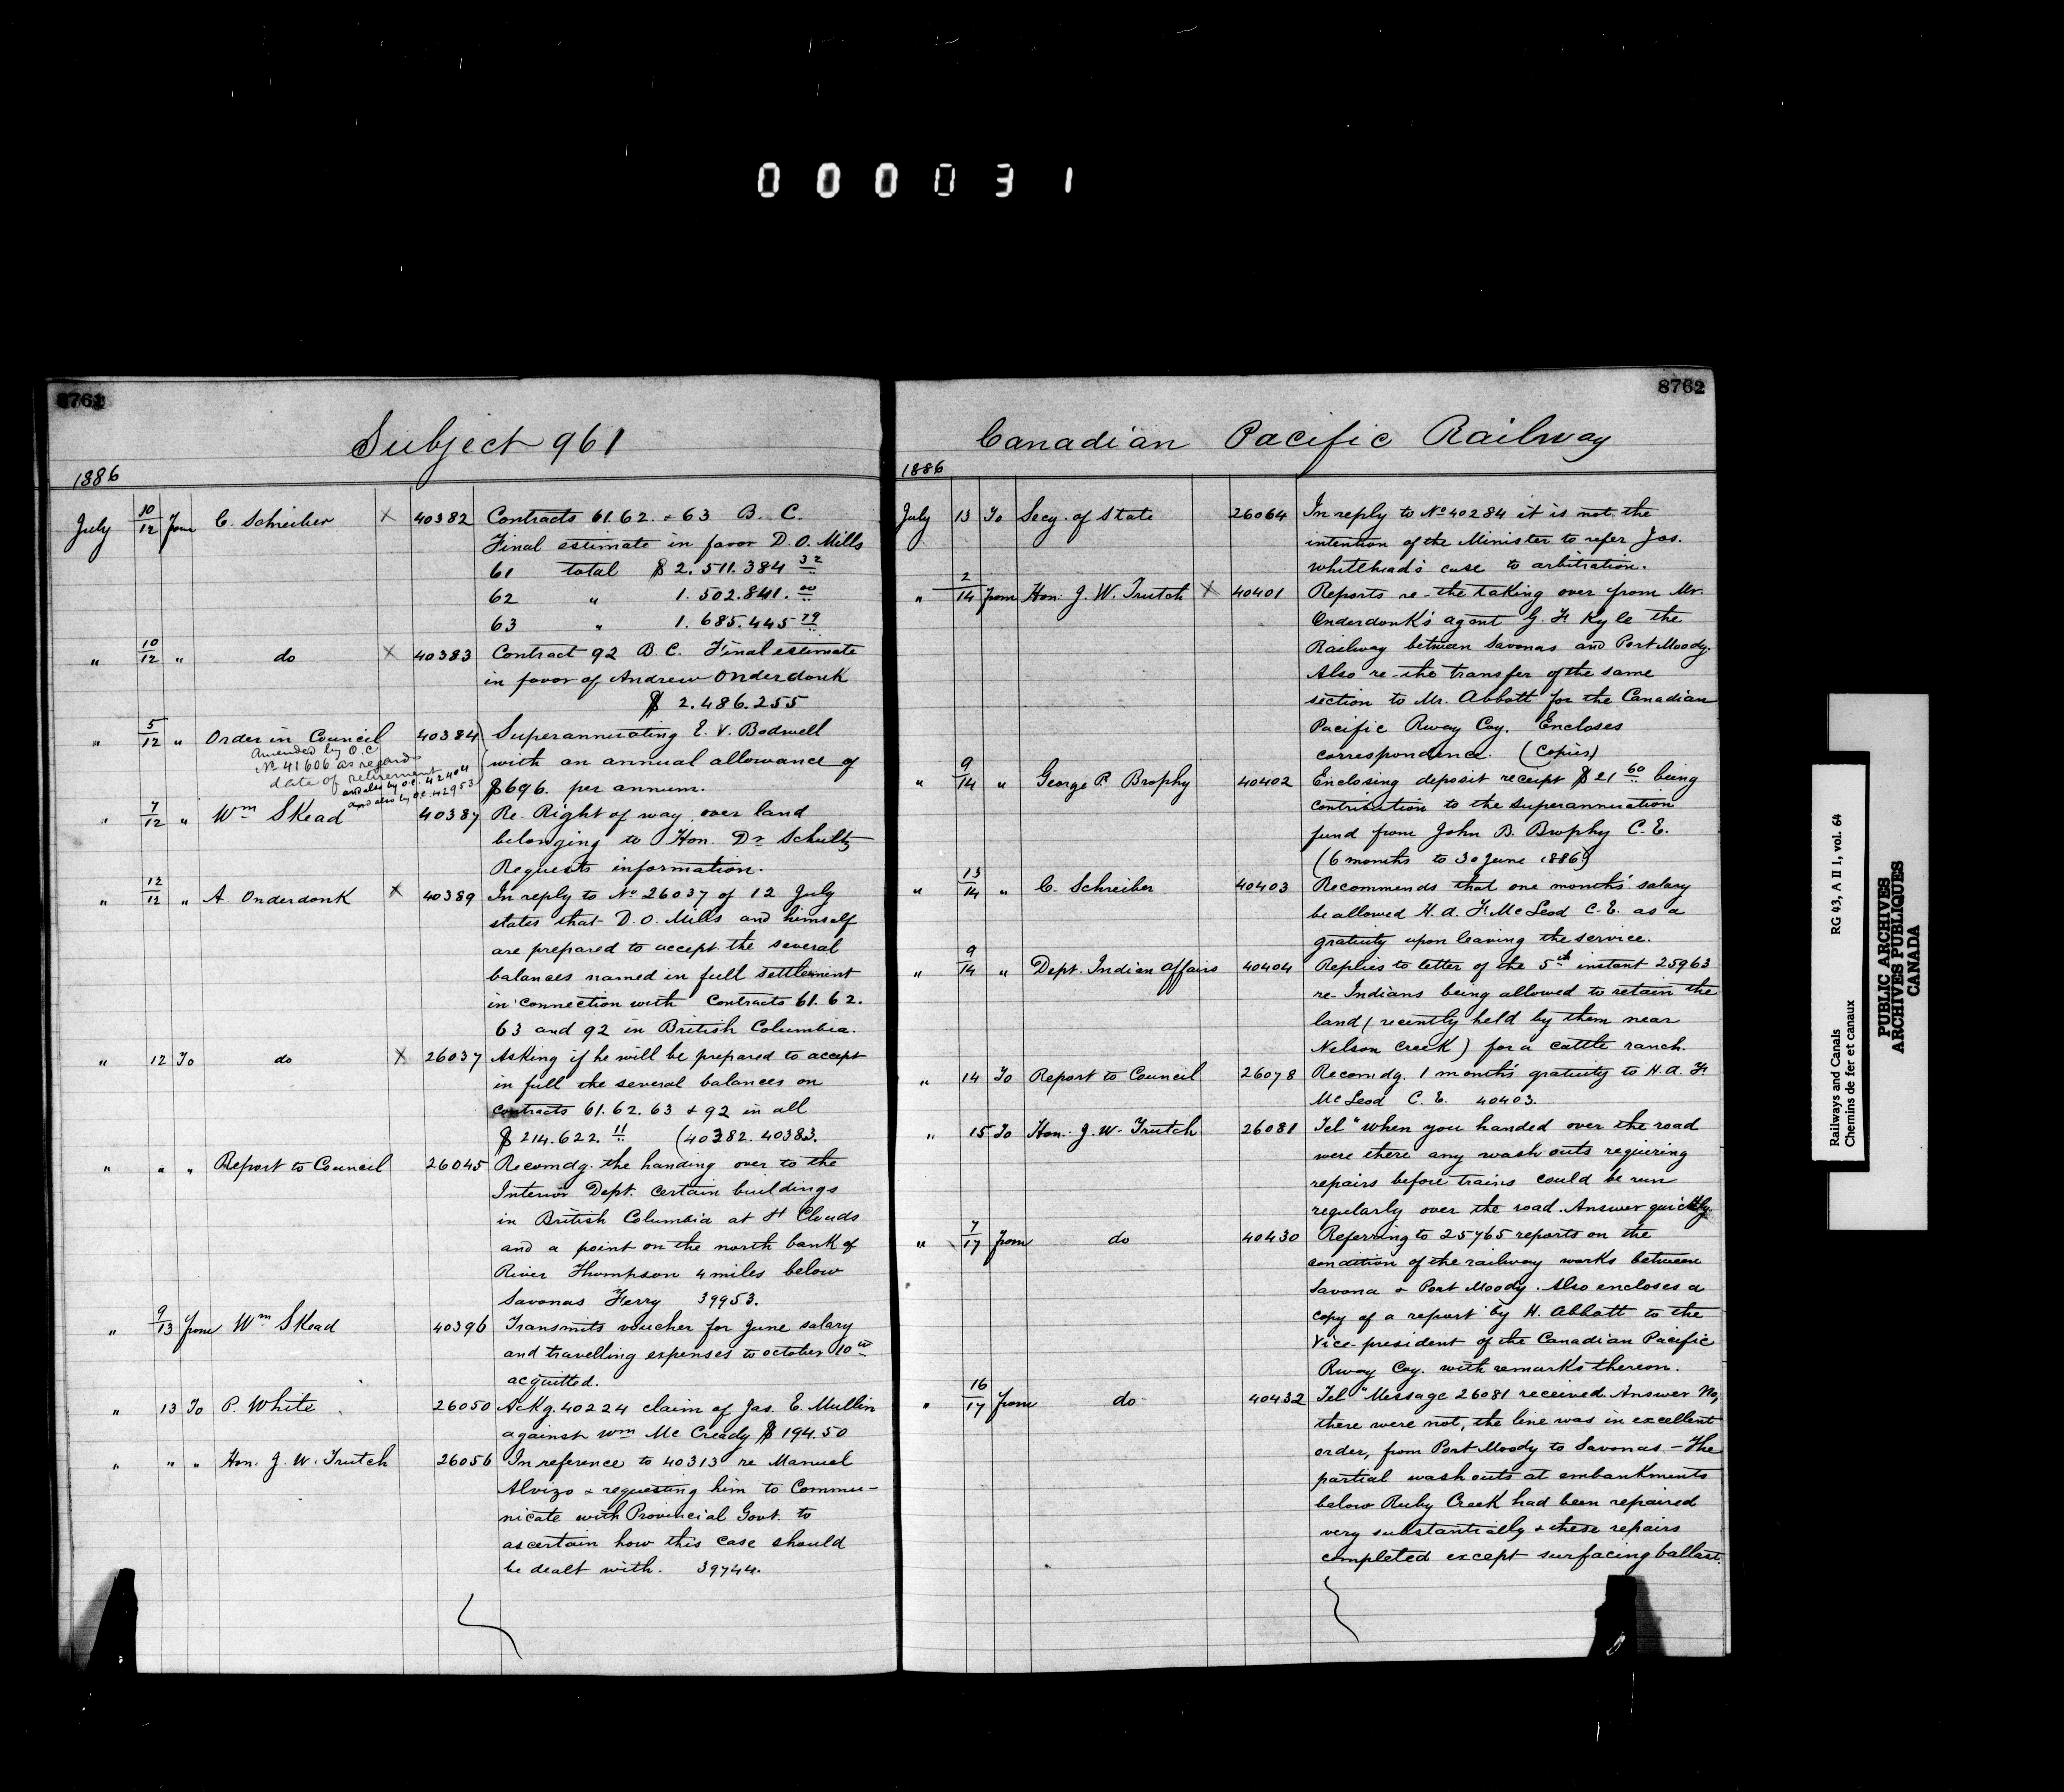 000031
8761
Subject 961
1886
July 10/12 from C. Schreiber X 40382 Contracts 61. 62. & 63 B. C.
Final estimate in favor D. O. Mills
61 total $ 2. 511. 384 32
62 " 1. 502. 841. 00
63 " 1. 685. 445 79
" 10/12 " do X 40383 Contract 92 B. C. Final estimate
in favor of Andrew Onderdonk
$ 2. 486. 255
" 5/12 " Order in Council 40384 Superannuating E. V. Bodwell
Amended by O.C
No 41606 as regards
date of retirement
and also by O.C. 42404
and also by O.C. 42953
with an annual allowance of
$696. per annum.
" 7/12 " Wm Skead 40387 Re. Right of way over land
belonging to Hon. Dr Schultz
Requests information.
" 12/12 " A Onderdonk X 40389 In reply to No 26037 of 12 July
states that D. O. Mills and himself
are prepared to accept the several
balances named in full settlement
in connection with Contracts 61. 62.
63 and 92 in British Columbia.
" 12 To do X 26037 Asking if he will be prepared to accept
in full the several balances on
contracts 61. 62. 63 & 92 in all
$ 214. 622. 11 (40382. 40383.
" " " Report to Council 26045 Recomdg. the handing over to the
Interior Dept. certain buildings
in British Columbia at St Clouds
and a point on the north bank of
River Thompson 4 miles below
Savonas Ferry 39953.
" 9/13 from Wm Skead 40396 Transmits voucher for June salary
and travelling expenses to October 10th
acquitted.
" 13 To P. White 26050 Ackg. 40224 claim of Jas. E. Mullin
against Wm McCready $ 194.50
" " " Hon. J. W. Trutch 26056 In reference to 40313 re Manuel
Alvizo & requesting him to Commu-
nicate with Provincial Govt. to
ascertain how this case should
be dealt with. 39744.
8762
Canadian Pacific Railway
1886
July 13 To Secy. of State 26064 In reply to No 40284 it is not the
intention of the Minister to refer Jas.
Whitehead's case to arbitration.
" 2/14 from Hon. J. W. Trutch X 40401 Reports re- the taking over from Mr.
Onderdonk's agent G. F Kyle the
Railway between Savonas and Port Moody.
Also re- the transfer of the same
section to Mr. Abbott for the Canadian
Pacific Rway Coy. Encloses
correspondence. (Copies)
" 9/14 " George P. Brophy 40402 Enclosing deposit receipt $ 21 60 being
contribution to the superannuation
fund from John B. Brophy C. E.
(6 months to 30 June 1886)
" 13/14 " C. Schreiber 40403 Recommends that one months' salary
be allowed H. A. F. McLeod C. E. as a
gratuity upon leaving the service.
" 9/14 " Dept. Indian Affairs 40404 Replies to letter of the 5th instant 25963
re- Indians being allowed to retain the
land (recently held by them near
Nelson Creek) for a cattle ranch.
" 14 To Report to Council 26078 Recomdg. 1 month's gratuity to H. A. F.
McLeod C. E. 40403.
" 15 To Hon. J. W. Trutch 26081 Tel "When you handed over the road
were there any wash outs requiring
repairs before trains could be run
regularly over the road. Answer quickly.
" 7/17 from do 40430 Referring to 25765 reports on the
condition of the railway works between
Savona & Port Moody. Also encloses a
copy of a report by H. Abbott to the
Vice-president of the Canadian Pacific
Rway Coy. with remarks thereon.
" 16/17 from do 40432 Tel "Message 26081 received. Answer No,
there were not, the line was in excellent
order, from Port Moody to Savonas. - The
partial wash outs at embankments
below Ruby Creek had been repaired
very substantially & these repairs
completed except surfacing ballast.
Railways and Canals RG 43, A II 1, vol. 64
Chemins de fer et canaux
PUBLIC ARCHIVES
ARCHIVES PUBLIQUES
CANADA